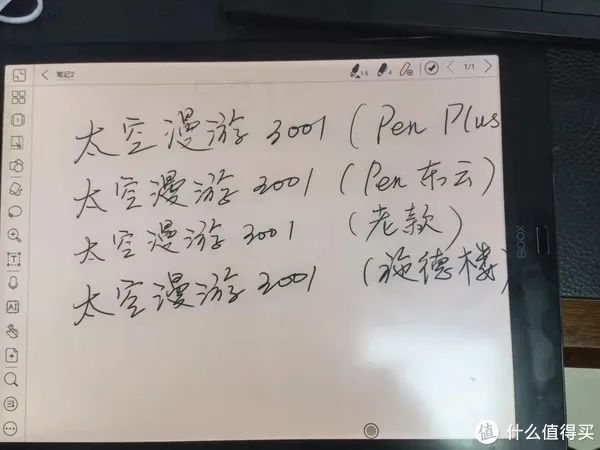 笔记2
1.5 4 1/1
太空漫游 3001 (Pen Plus
太空漫游 3001 (Pen 东云)
太空漫游 3001 (老款)
太空漫游 3001 (施德楼)
BOOX
值 什么值得买